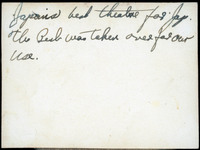 Japans best theatre for Jap.
the Besh was taken over for our
use.